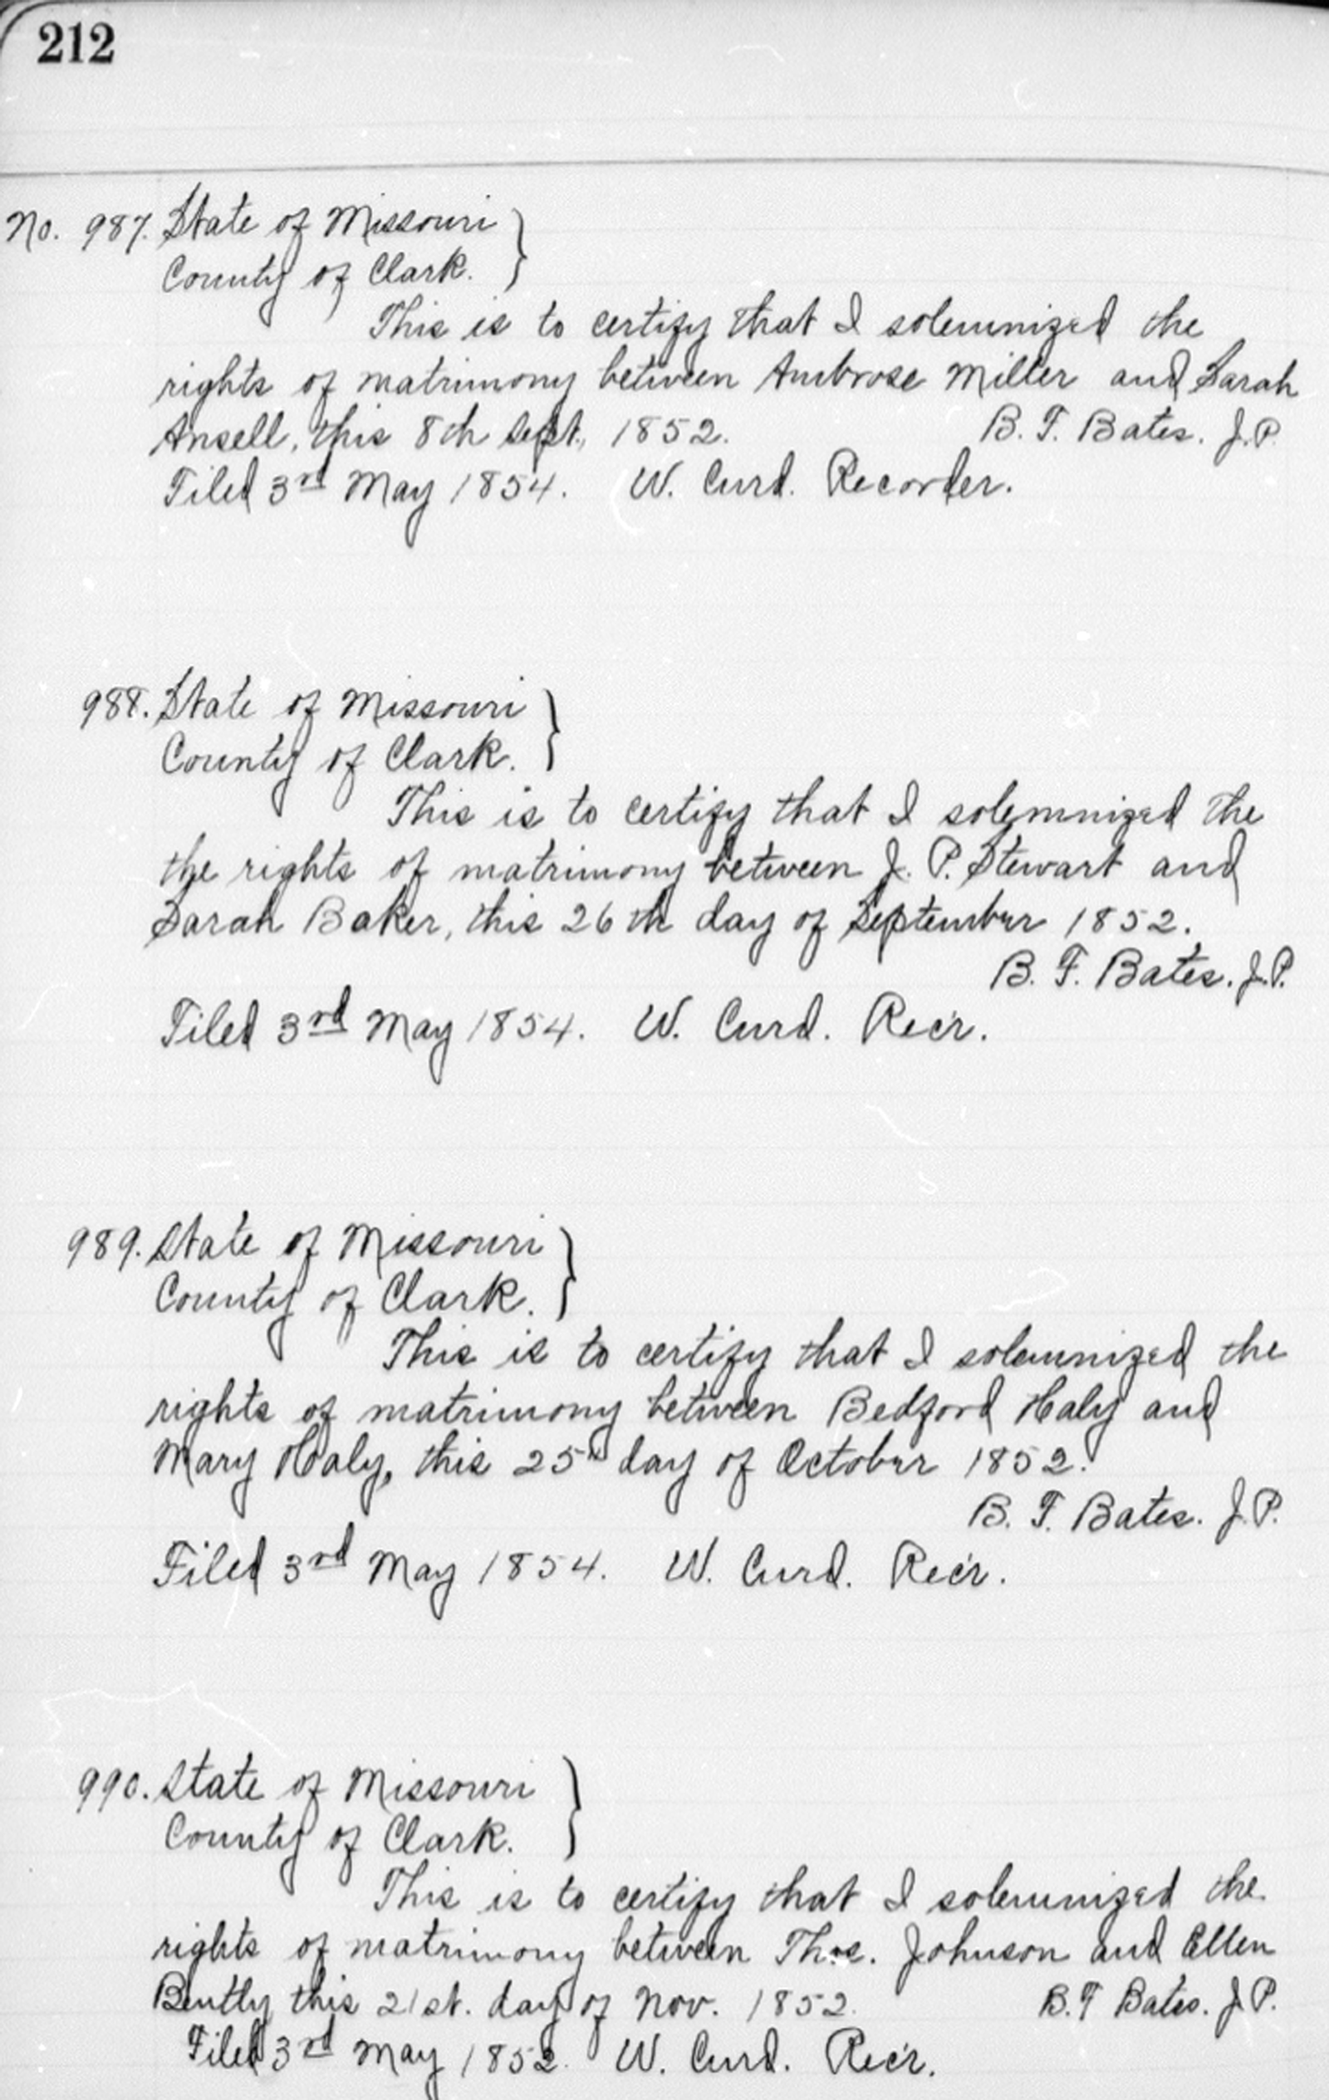 212
No. 987. State of Missouri }
County of Clark.
This is to certify that I solemnized the
rights of matrimony between Ambrose Miller and Sarah
Ansell, this 8th Sept., 1852. B. F. Bates. J.P.
Filed 3rd May 1854. W. Curd. Recorder.
988. State of Missouri }
County of Clark.
This is to certify that I solemnized the
the rights of matrimony between J. P. Stewart and
Sarah Baker, this 26th day of September 1852.
B. F. Bates. J.P.
Filed 3rd May 1854. W. Curd. Rec'r.
989. State of Missouri }
County of Clark.
This is to certify that I solemnized the
rights of matrimony between Bedford Haly and
Mary Haly, this 25th day of October 1852.
B. F. Bates. J.P.
Filed 3rd May 1854. W. Curd. Rec'r.
990. State of Missouri }
County of Clark.
This is to certify that I solemnized the
rights of matrimony between Thos. Johnson and Ellen
Bently this 21st. day of Nov. 1852. B. F Bates. J.P.
Filed 3rd May 1852. W. Curd. Rec'r.